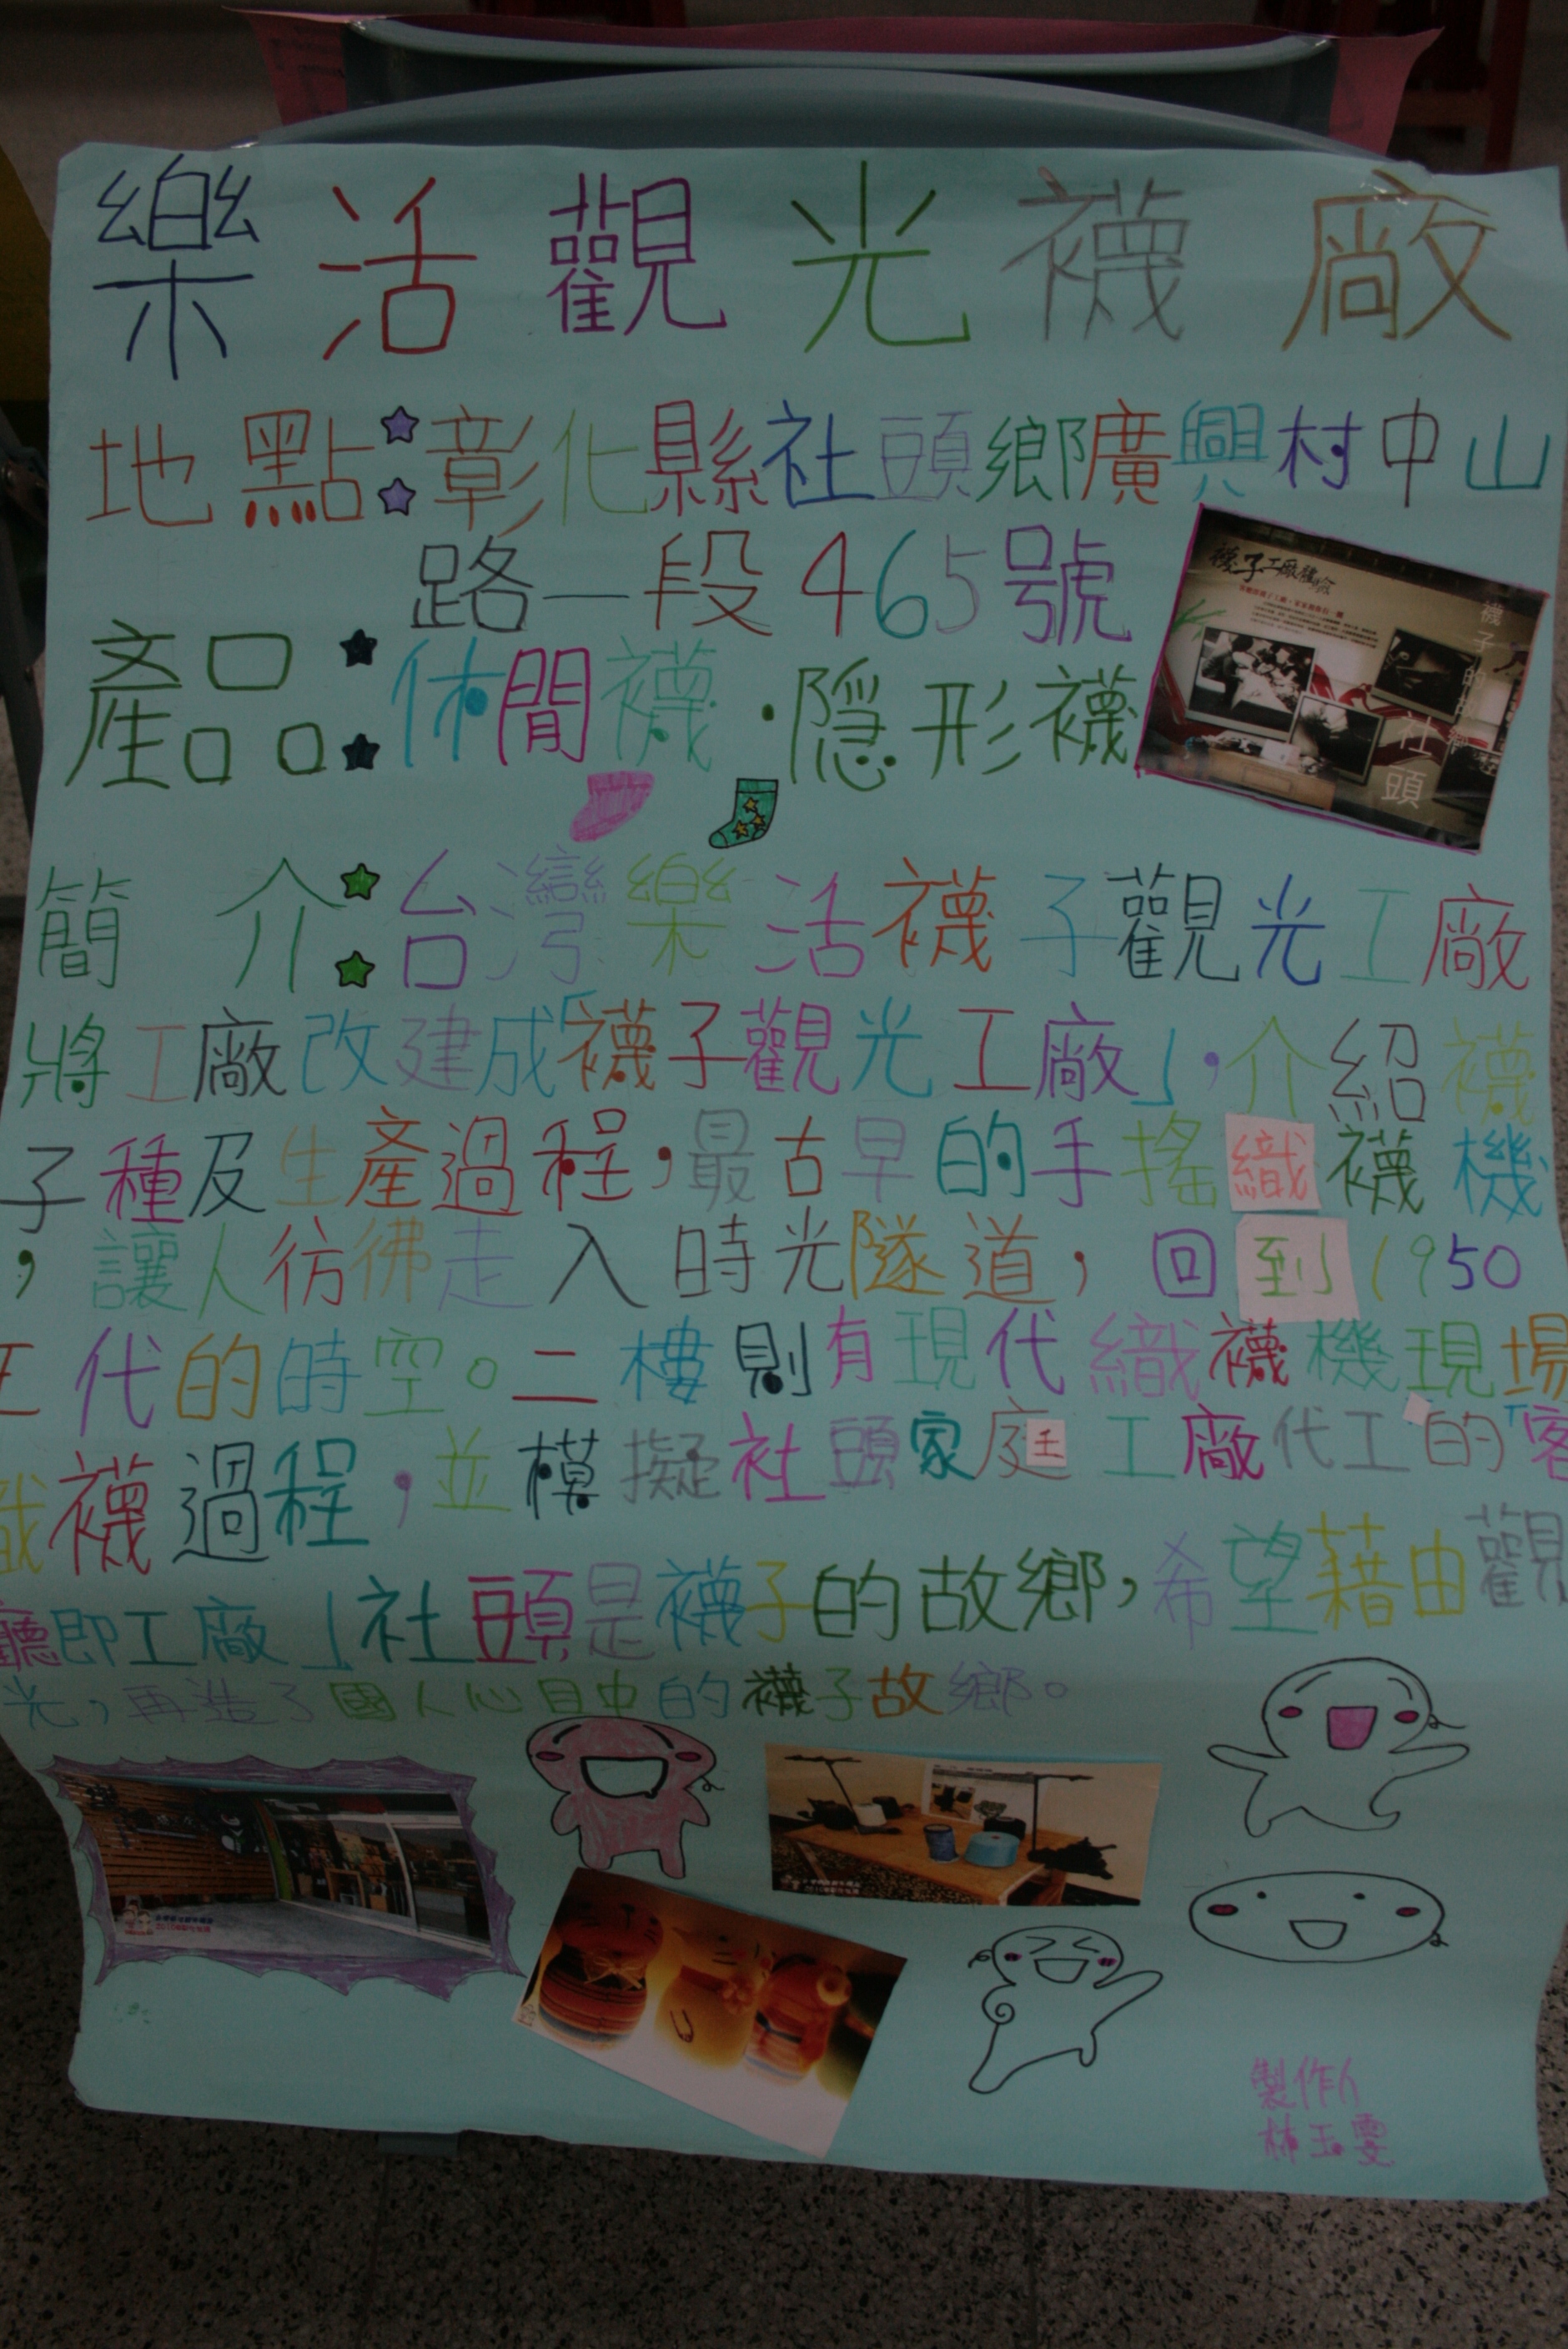 樂活觀光襪廠
地點:彰化縣社頭鄉廣興村中山
路一段465號
產品:休閒襪.隱形襪
襪子工廠體驗
襪子的故鄉
社頭
簡介:台灣樂活襪子觀光工廠
將工廠改建成「襪子觀光工廠」,介紹襪
子種及生產過程,最古早的手搖織襪機
,讓人彷彿走入時光隧道,回到1950
年代的時空。二樓則有現代織襪機現場
織襪過程,並模擬社頭家庭工廠代工的「客
廳即工廠」社頭是襪子的故鄉,希望藉由觀
光,再造了國人心目中的襪子故鄉。
製作人
林玉雯